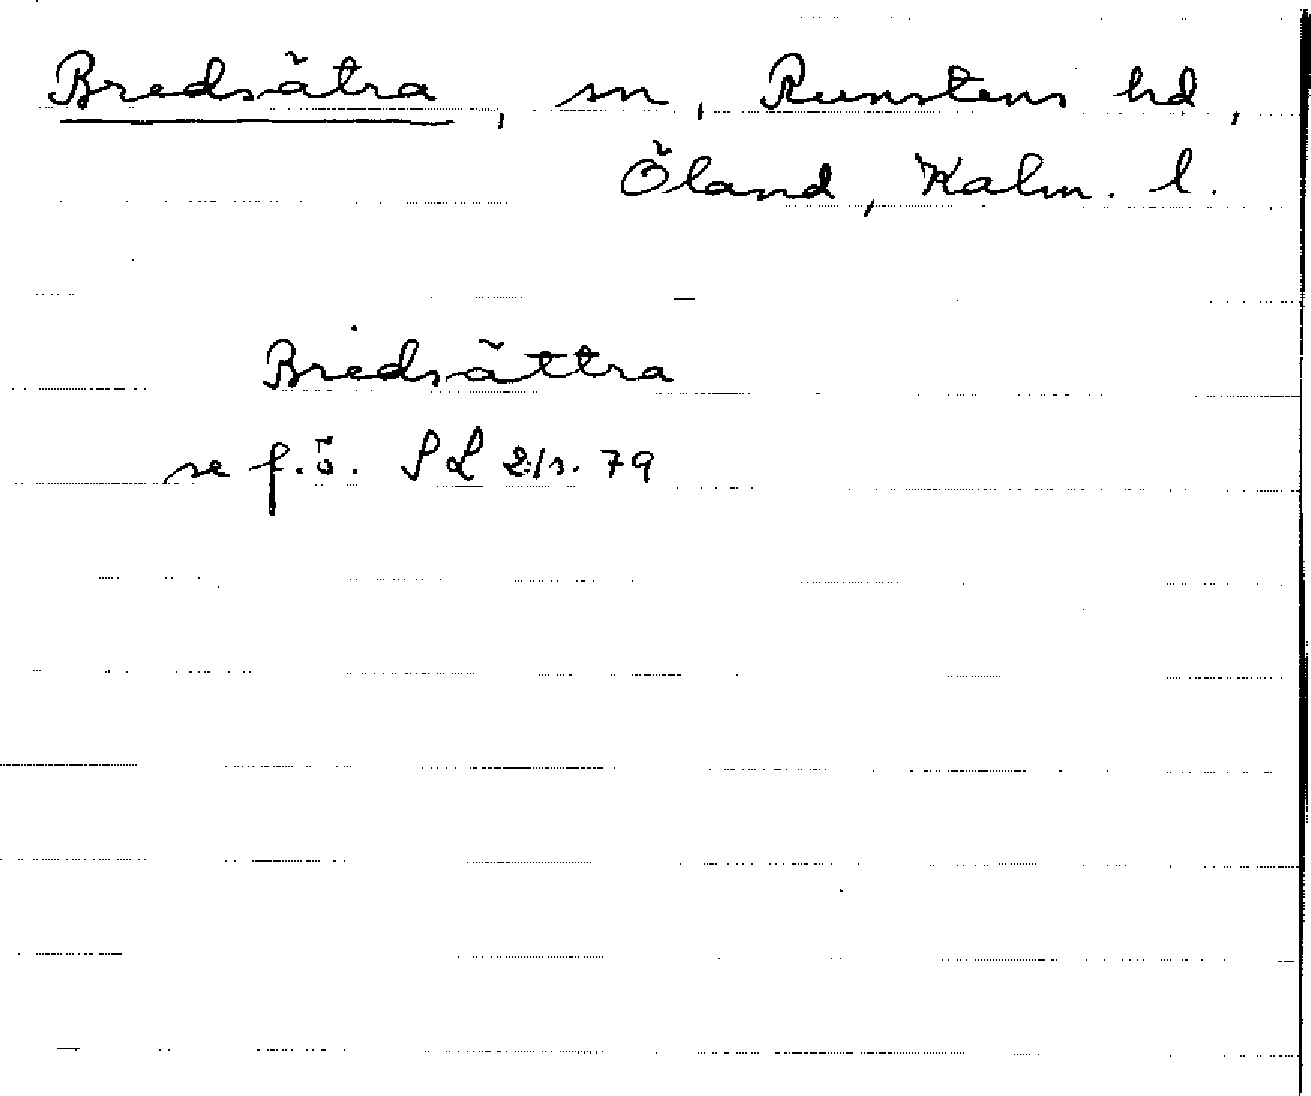 Bredsätra, sn, Runstens hd,
Öland, Kalm. l.
Bredsättra
se f.ö. SL 2/s. 79